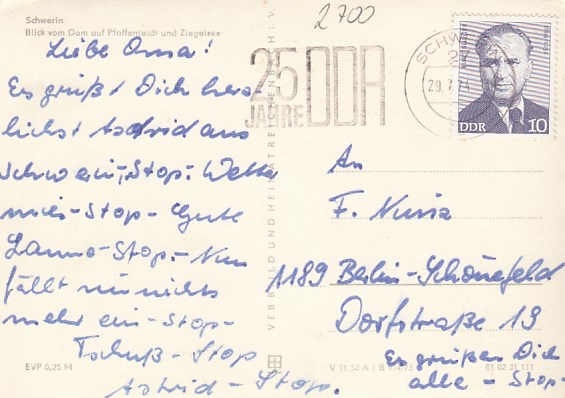 Schwerin
Blick vom Dom auf Pfaffenteich und Ziegelsee
2700
Liebe Oma!
Es grüßt Dich herz-
lichst Astrid aus
Schwerin-Stop. Wetter
mies-Stop-Gute
Laune-Stop.-Nun
fällt mir nichts
mehr ein-Stop-
Tschüß-Stop
Astrid-Stop.
EVP 0,25 M
VEB BILD UND HEIMAT REICHENBACH I. V.
25
JAHRE
DDR
SCHWERIN
29.7.74
DDR 10
An
F.
1189 Berlin-Schönefeld
Dorfstraße 19
Es grüßen Dich
alle-Stop-
V 11 52 A 1 B
01 02 31 111